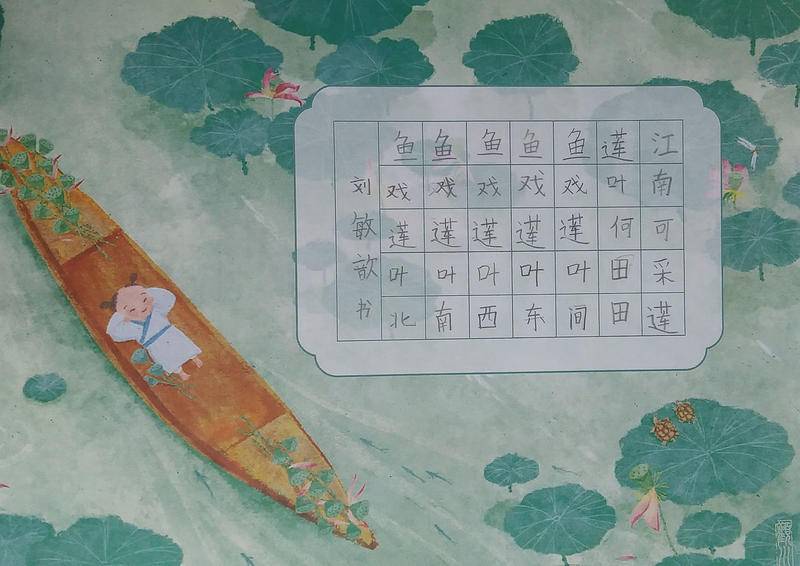 江南可采莲
莲叶何田田
鱼戏莲叶间
鱼戏莲叶东
鱼戏莲叶西
鱼戏莲叶南
鱼戏莲叶北
刘敏歆书